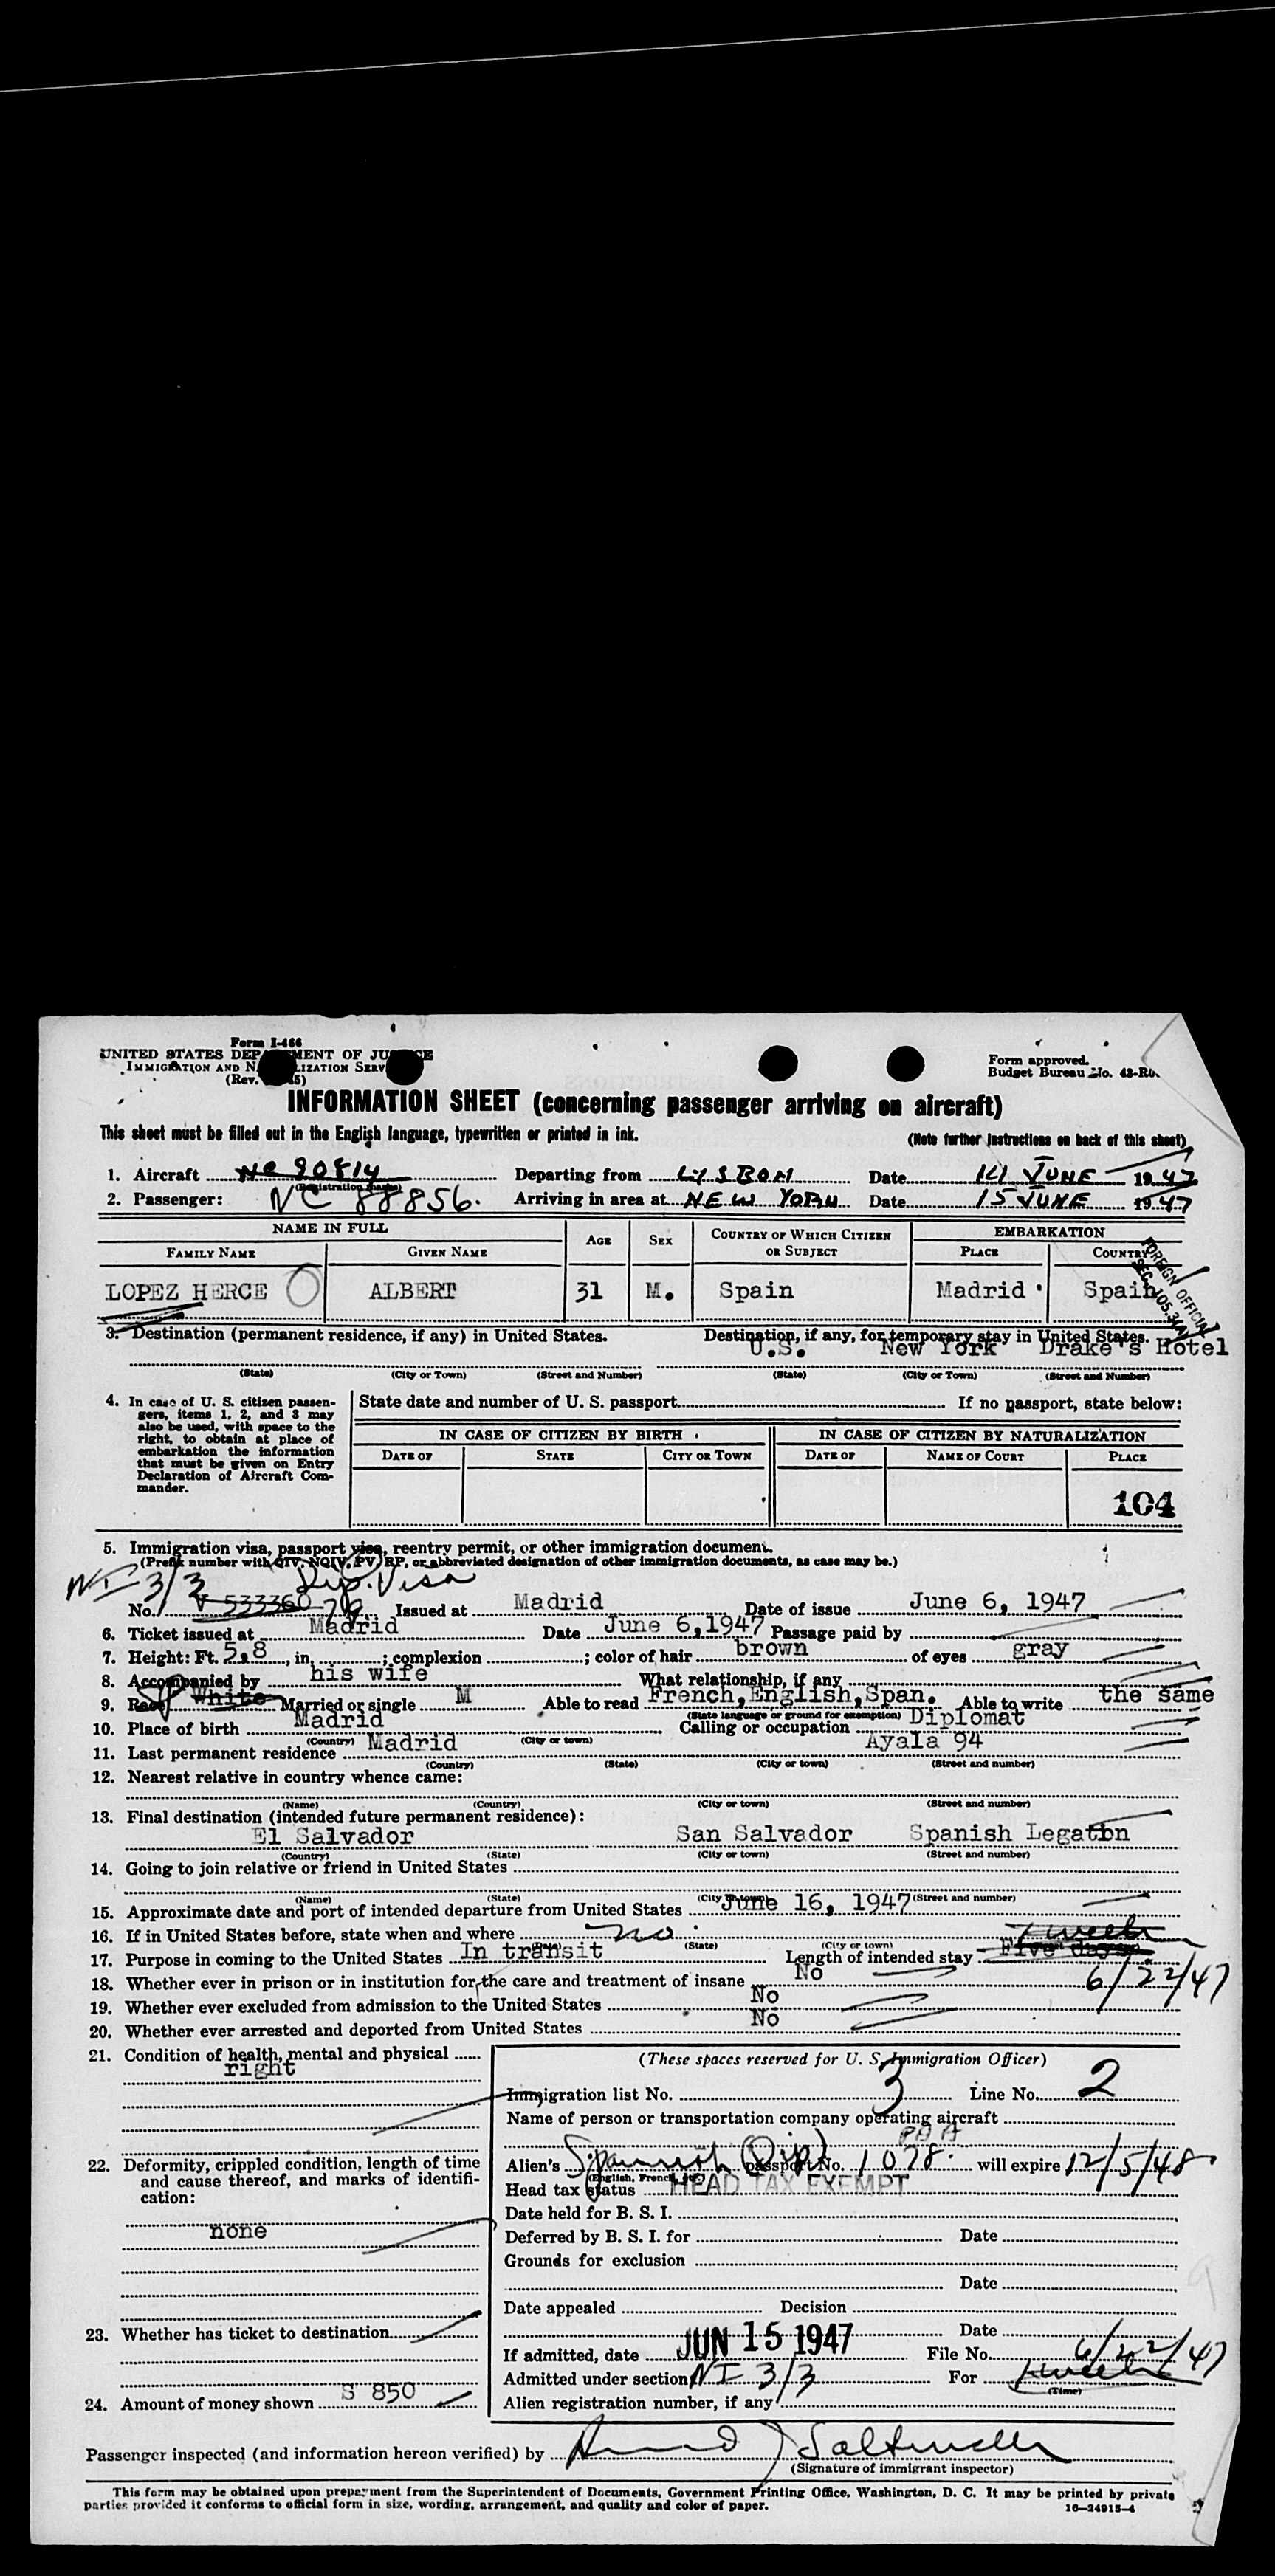 Form I-466
UNITED STATES DEP MENT OF JU CE
IMMIGRATION AND N LIZATION SERV
(Rev. 5)
Form approved.
Budget Bureau No. 43-R0
INFORMATION SHEET (concerning passenger arriving on aircraft)
This sheet must be filled out in the English language, typewritten or printed in ink.
(Note further instructions on back of this sheet)
1. Aircraft NC 90814 Departing from LISBON Date 14 JUNE 1947
(Registration marks)
2. Passenger: NC 88856. Arriving in area at NEW YORK Date 15 JUNE 1947
NAME IN FULL AGE SEX COUNTRY OF WHICH CITIZEN OR SUBJECT EMBARKATION
FAMILY NAME GIVEN NAME PLACE COUNTRY
LOPEZ HERCE ALBERT 31 M. Spain Madrid Spain
FOREIGN OFFICIAL
SEC. 105.3(A)
3. Destination (permanent residence, if any) in United States. Destination, if any, for temporary stay in United States.
U.S. New York Drake's Hotel
(State) (City or Town) (Street and Number) (State) (City or Town) (Street and Number)
4. In case of U. S. citizen passengers, items 1, 2, and 3 may also be used, with space to the right, to obtain at place of embarkation the information that must be given on Entry Declaration of Aircraft Commander.
State date and number of U. S. passport If no passport, state below:
IN CASE OF CITIZEN BY BIRTH IN CASE OF CITIZEN BY NATURALIZATION
DATE OF STATE CITY OR TOWN DATE OF NAME OF COURT PLACE
104
5. Immigration visa, passport visa, reentry permit, or other immigration document.
(Prefix number with QIV, NQIV, PV, RP, or abbreviated designation of other immigration documents, as case may be.)
NI 3/3 Dip. Visa
No. V 533360 76 Issued at Madrid Date of issue June 6, 1947
6. Ticket issued at Madrid Date June 6,1947 Passage paid by
7. Height: Ft. 5.8, in. ; complexion ; color of hair brown of eyes gray
8. Accompanied by his wife What relationship, if any
9. Race White Married or single M Able to read French,English,Span. Able to write the same
(State language or ground for exemption)
10. Place of birth Madrid Calling or occupation Diplomat
(Country) (City or town)
11. Last permanent residence Madrid Ayala 94
(Country) (State) (City or town) (Street and number)
12. Nearest relative in country whence came:
(Name) (Country) (City or town) (Street and number)
13. Final destination (intended future permanent residence):
El Salvador San Salvador Spanish Legation
(Country) (State) (City or town) (Street and number)
14. Going to join relative or friend in United States
(Name) (State) (City or town) (Street and number)
15. Approximate date and port of intended departure from United States June 16, 1947
16. If in United States before, state when and where no
(Date) (State) (City or town)
17. Purpose in coming to the United States In transit Length of intended stay Five days 1 week
6/22/47
18. Whether ever in prison or in institution for the care and treatment of insane No
19. Whether ever excluded from admission to the United States No
20. Whether ever arrested and deported from United States No
21. Condition of health, mental and physical
right
22. Deformity, crippled condition, length of time and cause thereof, and marks of identification:
none
23. Whether has ticket to destination
24. Amount of money shown $ 850
(These spaces reserved for U. S. Immigration Officer)
Immigration list No. 3 Line No. 2
Name of person or transportation company operating aircraft
PAA
Alien's Spanish (Dip) passport No. 1078. will expire 12/5/48
(English, French, etc.)
Head tax status HEAD TAX EXEMPT
Date held for B. S. I.
Deferred by B. S. I. for Date
Grounds for exclusion
Date
Date appealed Decision
Date
If admitted, date JUN 15 1947 File No. 6/22/47
Admitted under section NI 3/3 For 1 week
(Time)
Alien registration number, if any
Passenger inspected (and information hereon verified) by
(Signature of immigrant inspector)
This form may be obtained upon prepayment from the Superintendent of Documents, Government Printing Office, Washington, D. C. It may be printed by private
parties provided it conforms to official form in size, wording, arrangement, and quality and color of paper.
16—24915-4